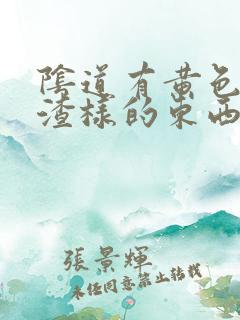 陰道有黃色
渣樣的東西
張景輝
未經同意禁止轉載